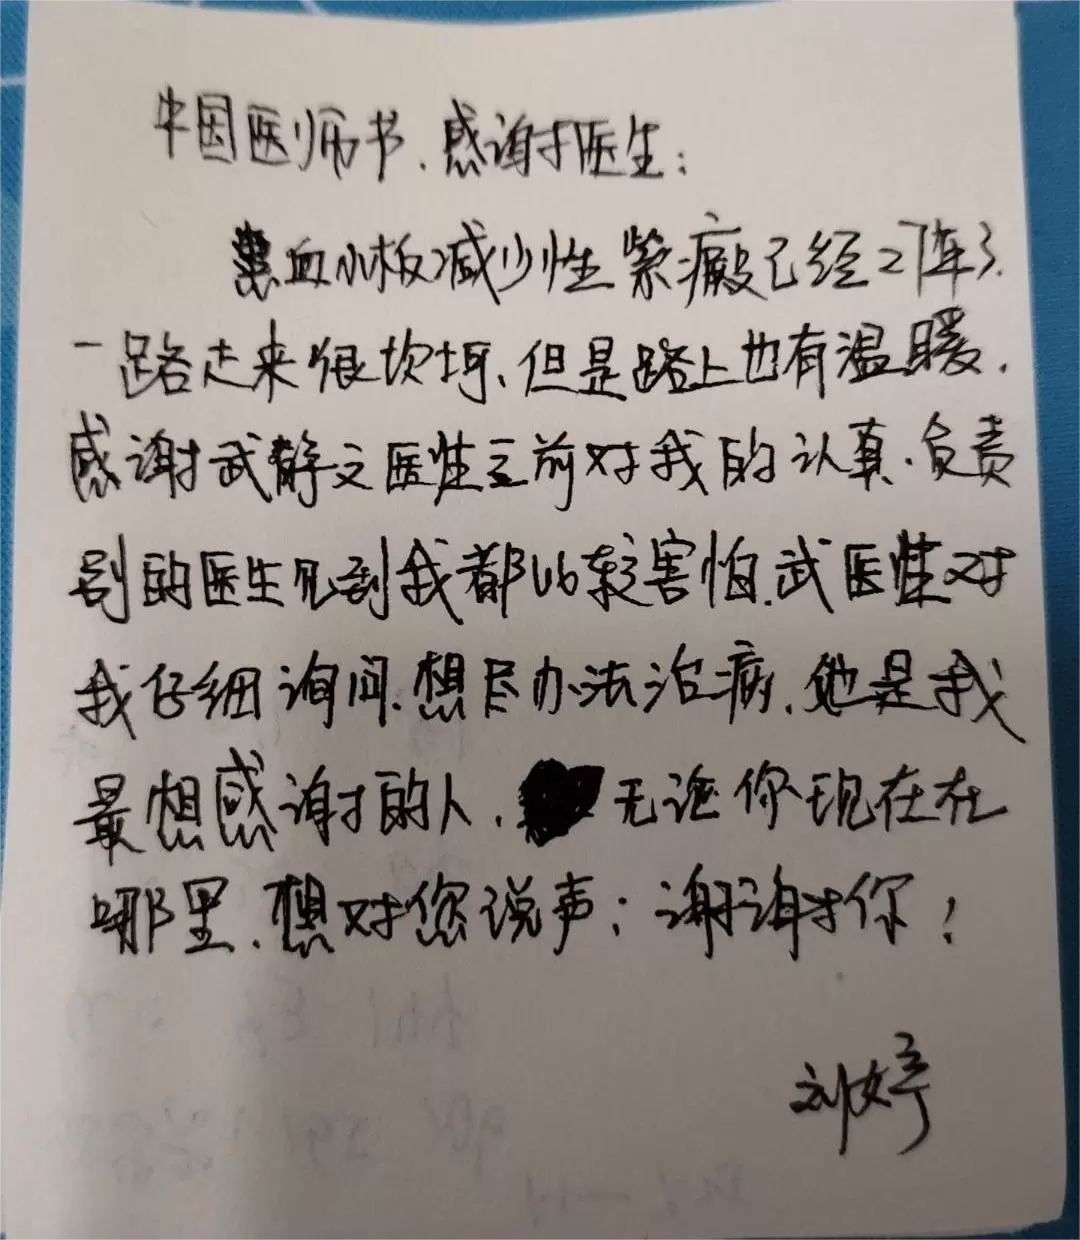 中国医师节、感谢医生：
患血小板减少性紫癜已经27年了.
一路走来很坎坷、但是路上也有温暖.
感谢武静文医生之前对我的认真、负责
别的医生见到我都比较害怕.武医生对
我仔细询问.想尽办法治病.她是我
最想感谢的人. 无论你现在在
哪里.想对您说声：谢谢你！
刘婷